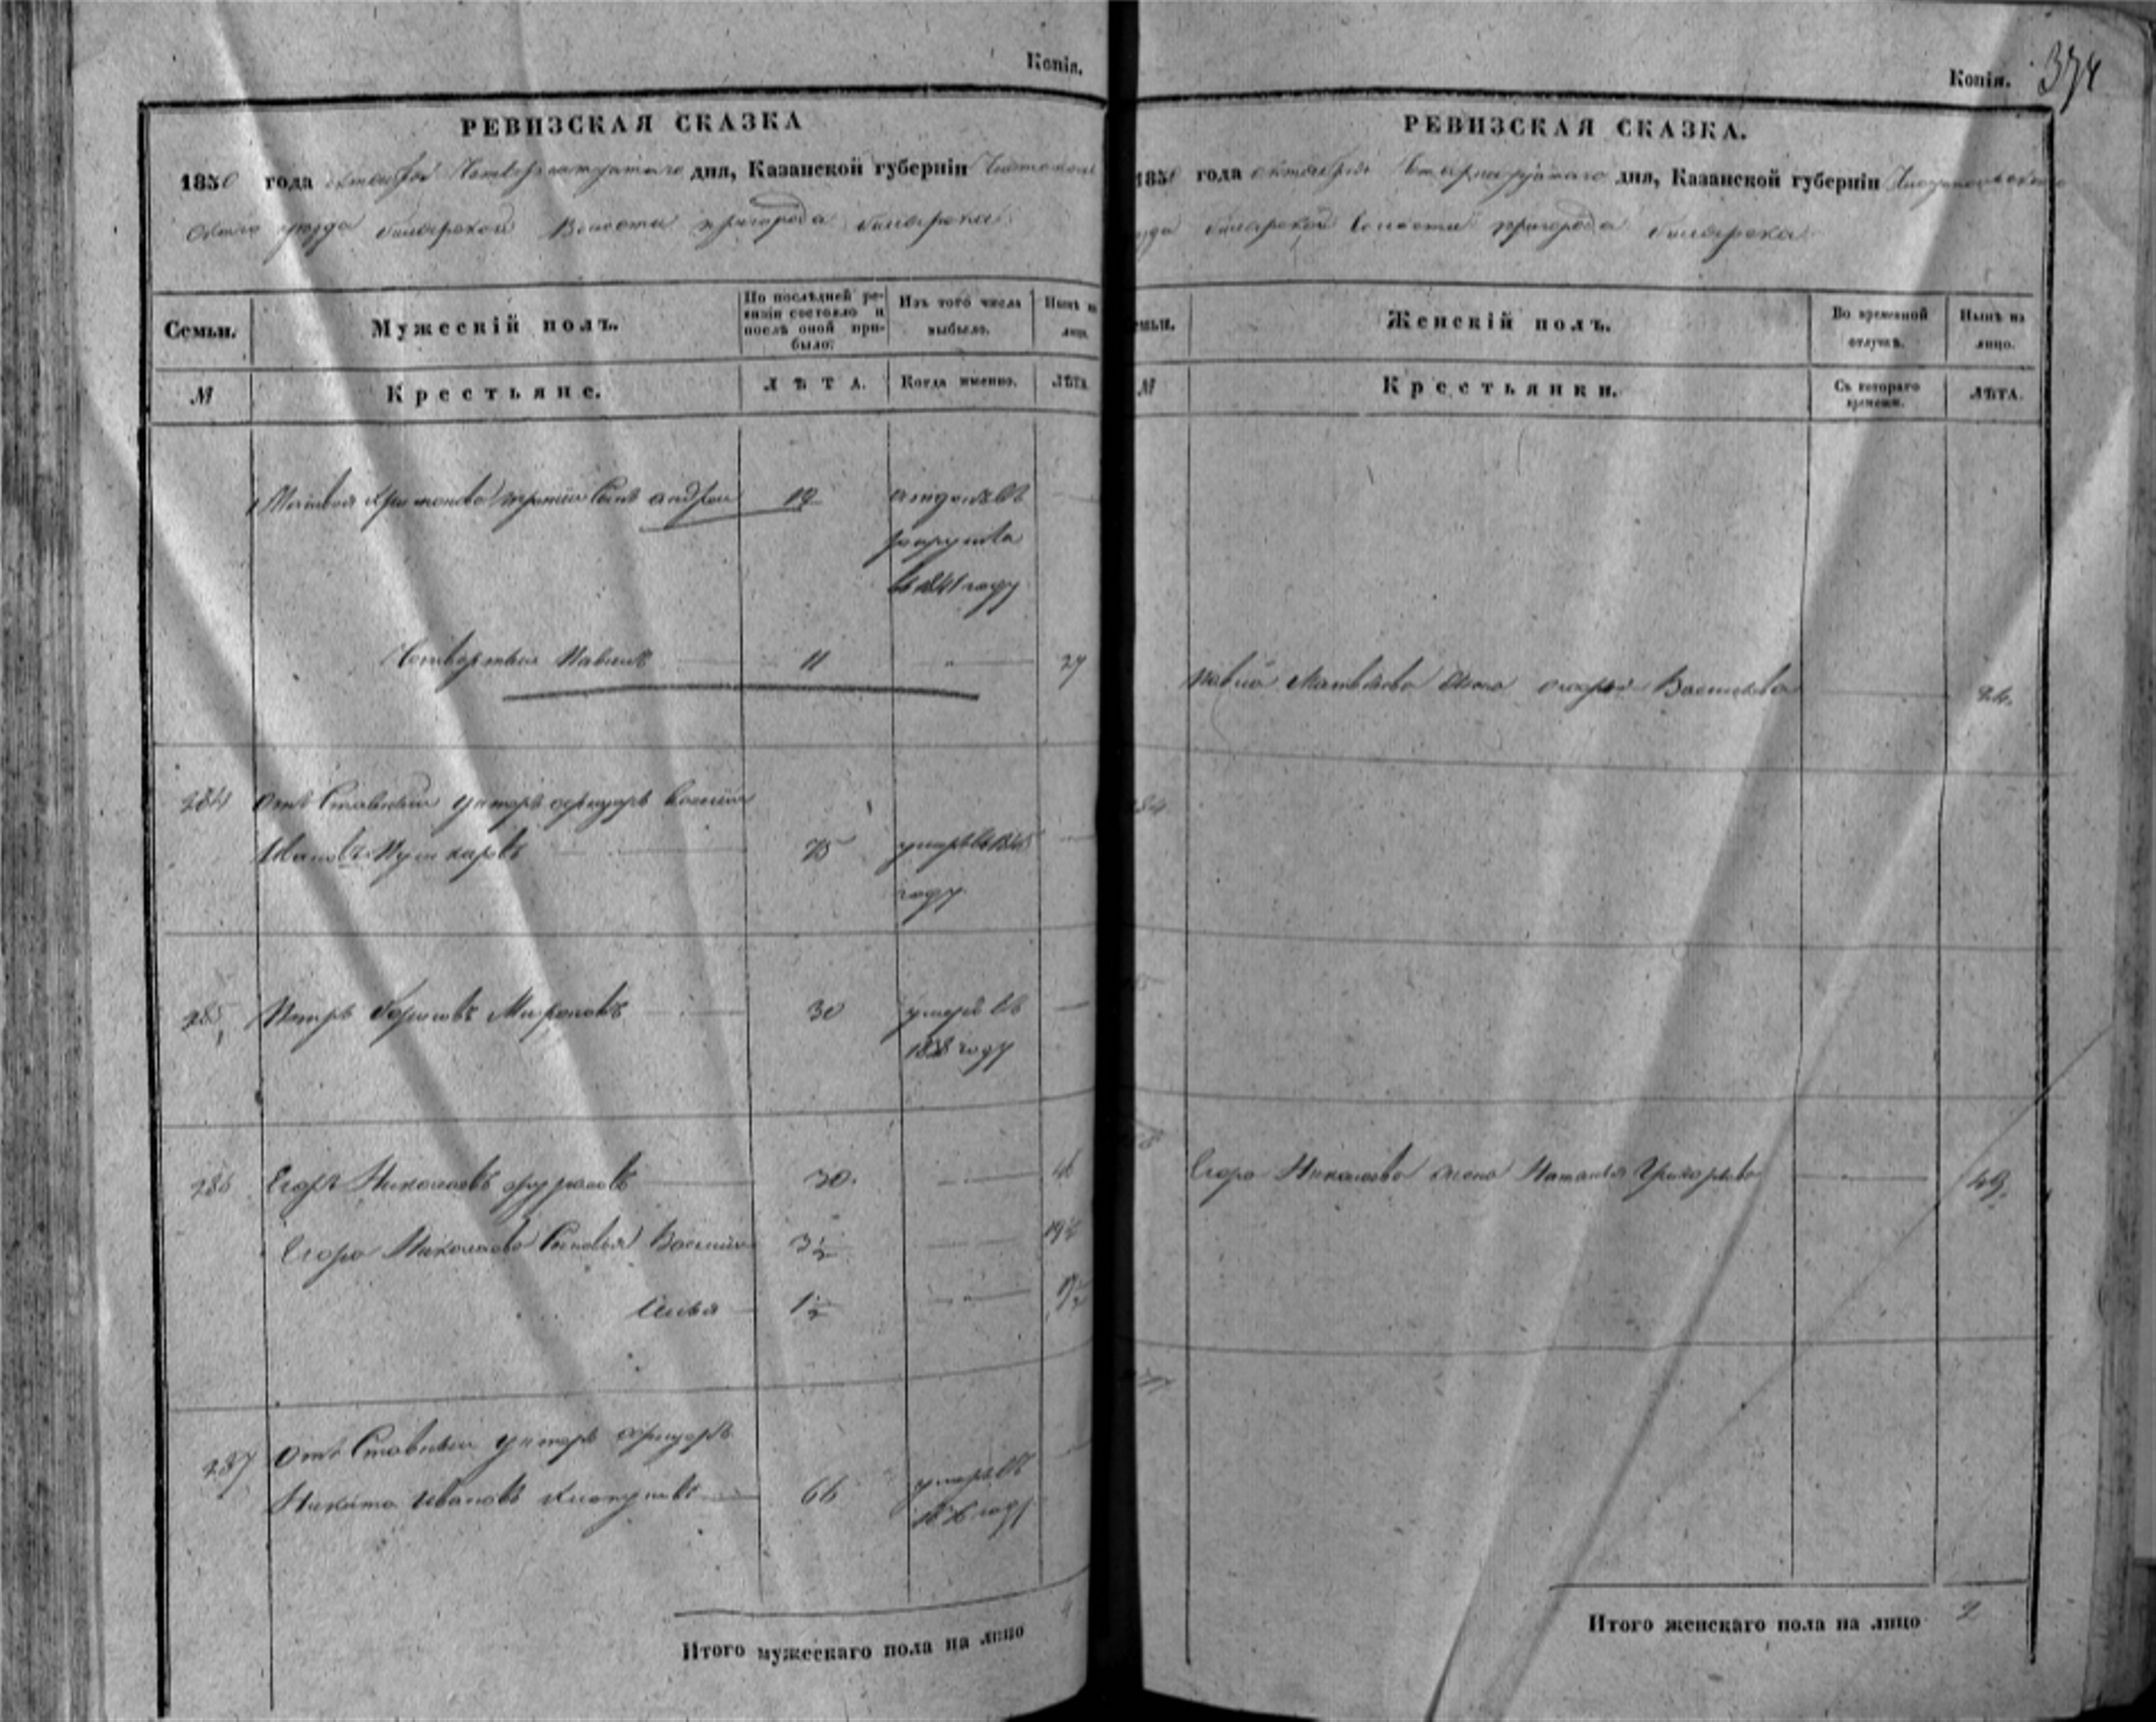 Копія.
РЕВИЗСКАЯ СКАЗКА
1850 года октября дня, Казанской губерніи
скаго уѣзда Билярской Волости пригорода Билярска
Семьи.
Мужескій полъ.
По послѣдней ревизіи состояло и послѣ оной прибыло.
Изъ того числа выбыло.
Нынѣ на лицо.
№
Крестьяне.
ЛѢТА.
Когда именно.
ЛѢТА
Матвея третій Сынъ Андрей 19 отданъ въ
рекруты
въ 1841 году
Четвертый Павелъ 11 27
284 Отъ Ставной унтеръ офицеръ Василій
Ивановъ Пушкаревъ 75 умеръ въ
году
285 Петръ Борисовъ Мироновъ 30 умеръ въ
1838 году
286 Егоръ Николаевъ 30. 46
Егора Николаева Сыновья Василій 3½ 19½
Илья 1½
287 Отъ Ставной унтеръ офицеръ
Никита Ивановъ 66 умеръ въ
году
Итого мужескаго пола на лицо 4
Копія. 374
РЕВИЗСКАЯ СКАЗКА.
1850 года октября дня, Казанской губерніи Чистопольскаго
Билярской Волости пригорода Билярска
Женскій полъ.
Во временной отлучкѣ.
Нынѣ на лицо.
№
Крестьянки.
Съ котораго времени.
ЛѢТА.
Павла Матвеева Жена Васильева 24.
Егора Николаева жена Наталья Григорьева 49.
Итого женскаго пола на лицо 2